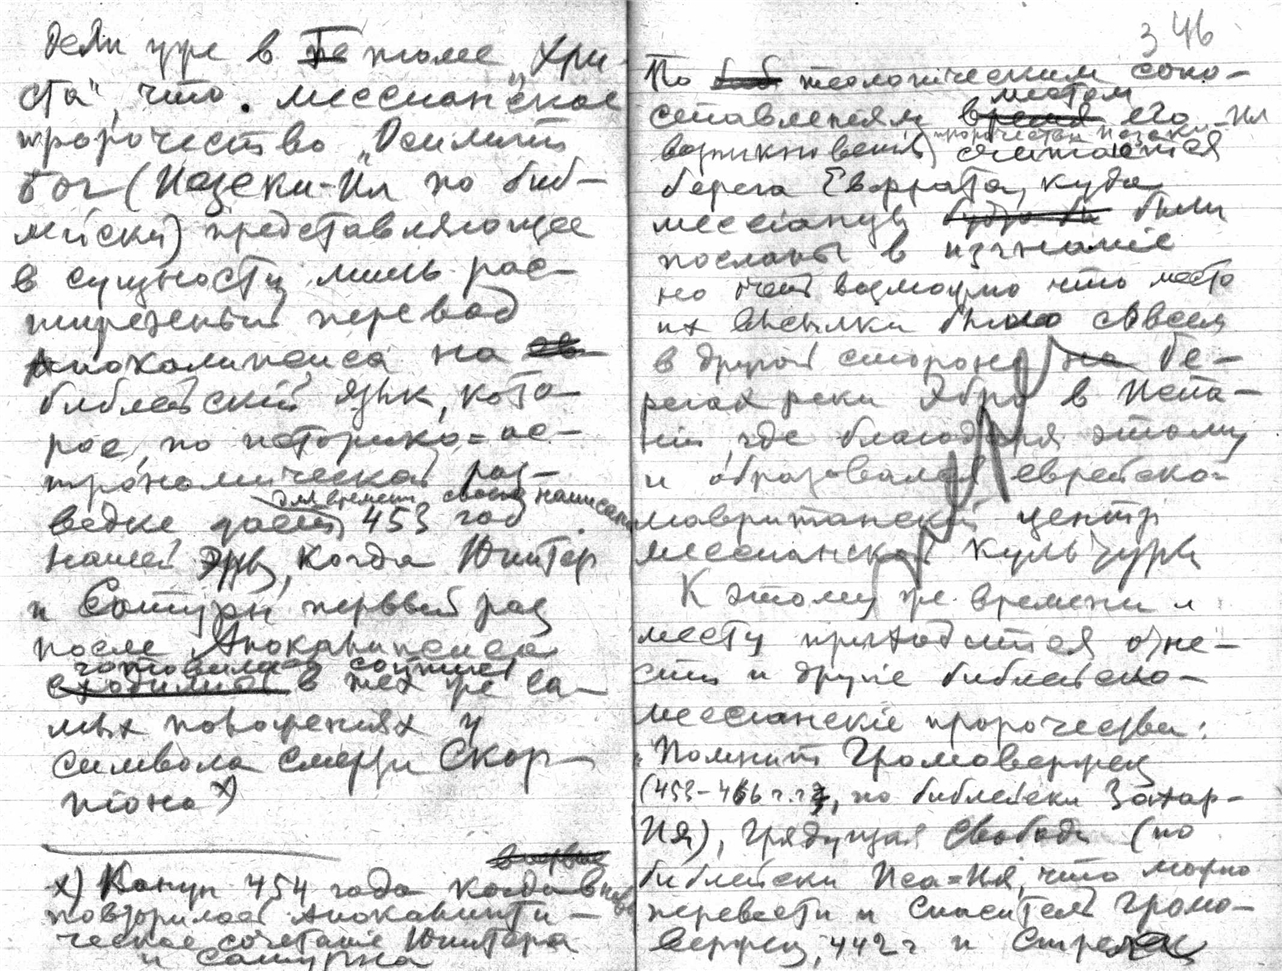 дели уже в Ге томе „Хри-
ста", что мессианское
пророчество „Осилит
бог" (Иезеки-Ил по биб-
лейски) представляющее
в сущности лишь рас-
ширенный перевод
Апокалипсиса на
библейский язык, кото-
рое, по историко-ас-
трономической раз-
для времени своего написания
ведке дает 453 год
нашей эры, когда Юпитер
и Сатурн первый раз
после Апокалипсиса
готовились сойтись
входили в тех же са-
мых положениях у
символа смерти Скор-
пиона х)
х) Канун 454 года когда вновь
впервые
повторилось апокалипти-
ческое сочетание Юпитера
и Сатурна
346
По теологическим сопо-
местом
ставлениям время его
возникновения пророчества Иезеки-Ил
считается
берега Евфрата, куда
мессианцы будто бы были
посланы в изгнание
но возможно что место
их высылки было совсем
в другой стороне на бе-
регах реки Эбро в Испа-
нии, где благодаря этому
и образовался еврейско-
мавританский центр
мессианской культуры
К этому же времени и
месту приходится отне-
сти и другие библейско-
мессианскіе пророчества:
„Помнит Громовержец
(453-466 г.г., по библейски Захар-
Ия), Грядущая Свобода (по
библейски Иса=Ия, что можно
перевести и Спаситель Громо-
вержец, 442 г и Стрелец